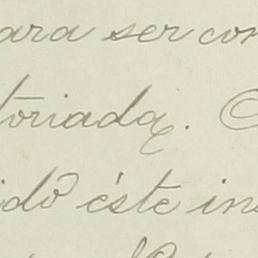 ara ser con
toriada.
ido éste ins